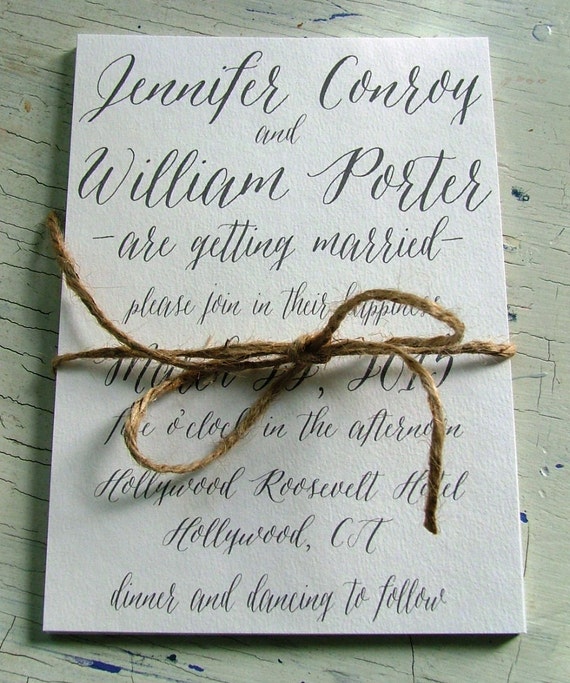 Jennifer Conroy
and
William Porter
-are getting married-
please join in their happiness
March 22, 2015
o'clock in the afternoon
Hollywood Roosevelt Hotel
Hollywood, CA
dinner and dancing to follow